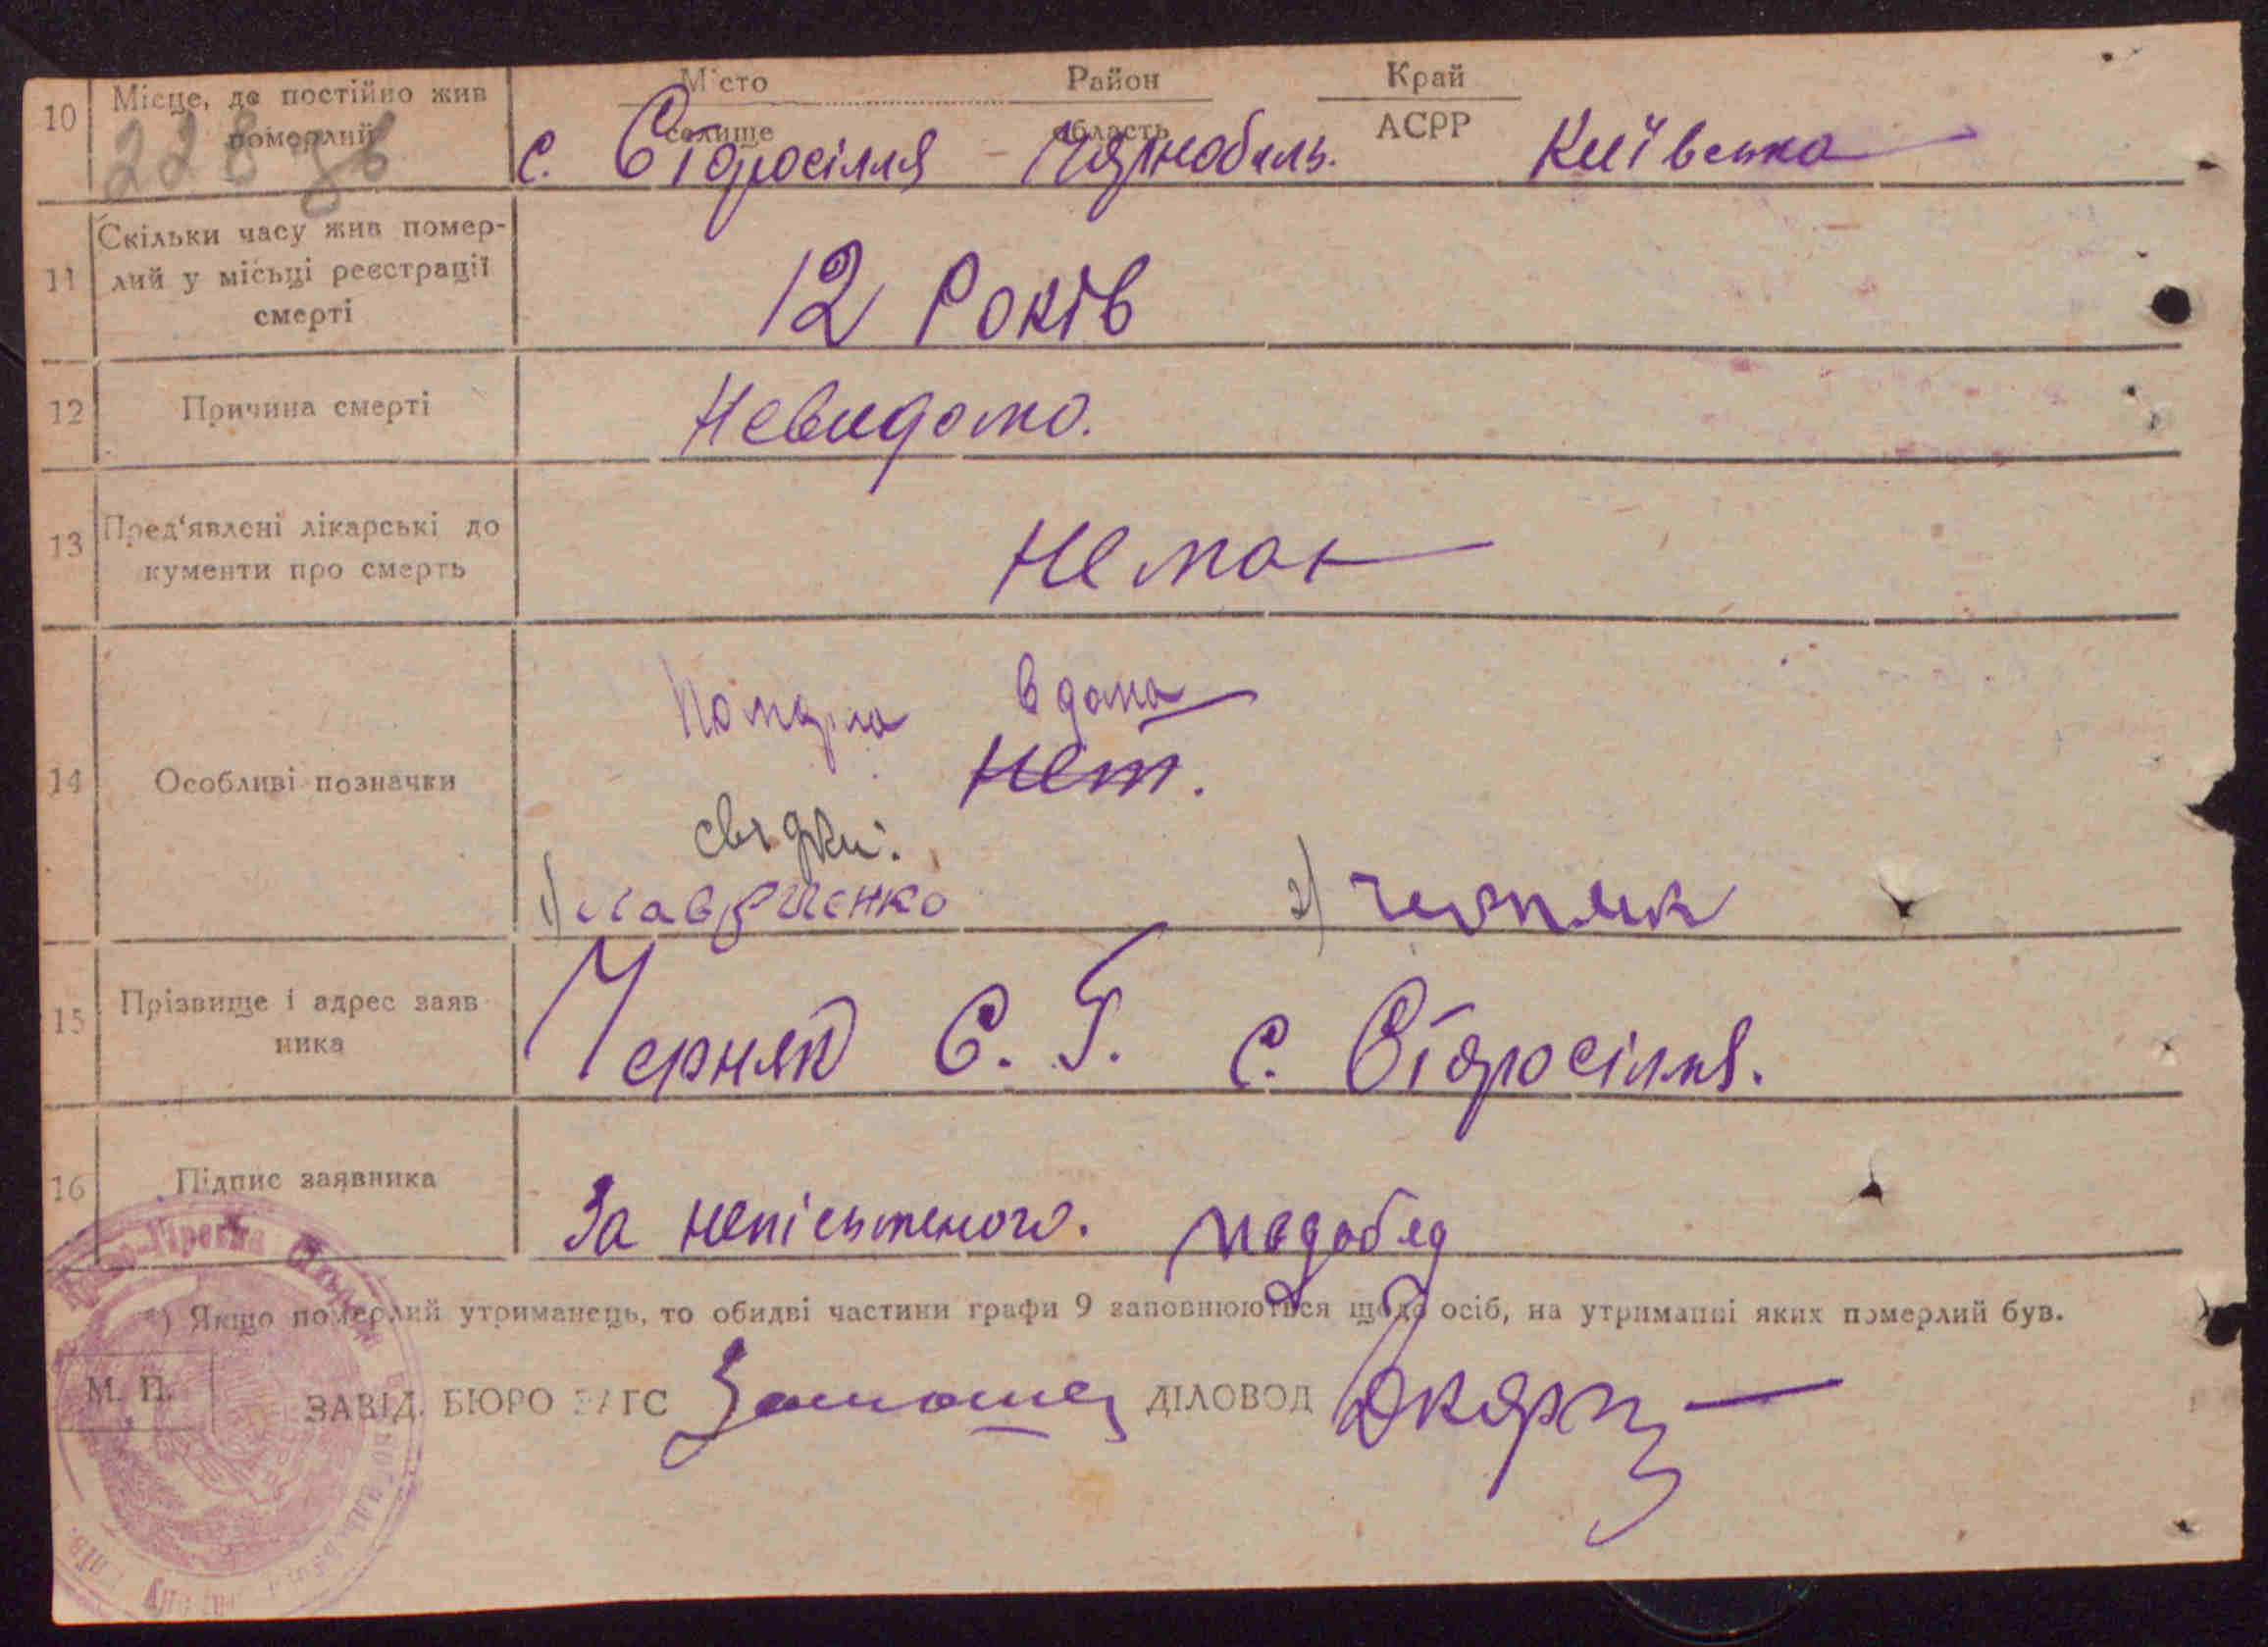 10 Місце, де постійно жив померлий
228 зв
Місто селище Район область Край АСРР
с. Старосілля Чорнобиль. Київська
11 Скільки часу жив помер-
лий у місьці реєстрації
смерті
12 Років
12 Причина смерті
Невидомо.
13 Пред'явлені лікарські до
кументи про смерть
Немає
14 Особливі позначки
Померла вдома
Нет.
свідки:
1) Лавриенко 2) Черняк
15 Прізвище і адрес заяв
ника
Черняк Є. Г. с. Старосілля.
16 Підпис заявника
За непісьменого.
*) Якщо померлий утриманець, то обидві частини графи 9 заповнюються щодо осіб, на утриманні яких померлий був.
М. П.
ЗАВІД. БЮРО ЗАГС ДІЛОВОД